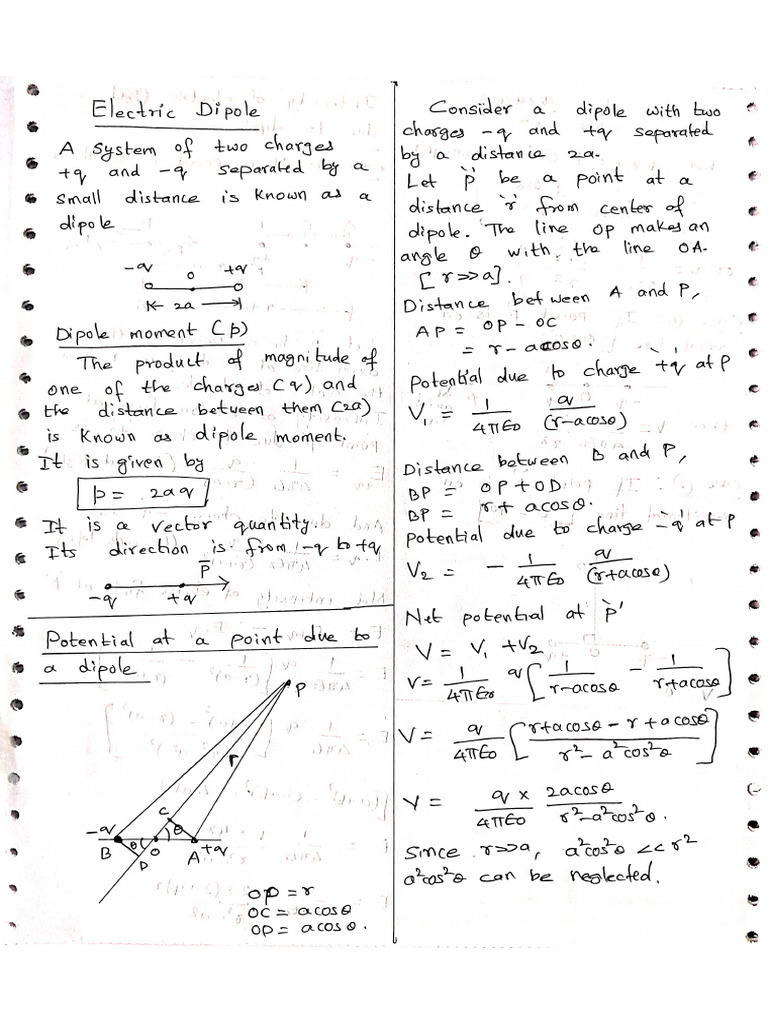 Electric Dipole
A system of two charges
+q and -q separated by a
small distance is known as a
dipole
-q o +q
K← 2a →
Dipole moment (p)
The product of magnitude of
one of the charges (q) and
the distance between them (2a)
is known as dipole moment.
It is given by
p = 2aq
It is a vector quantity.
Its direction is from -q to +q
p̅
-q +q
Potential at a point due to
a dipole
P
r
C
-q θ θ
B O A +q
D
OP = r
OC = a cosθ
OP = a cosθ.
Consider a dipole with two
charges -q and +q separated
by a distance 2a.
Let `P' be a point at a
distance `r' from center of
dipole. The line OP makes an
angle θ with the line OA.
[r>>a].
Distance between A and P,
AP = OP - OC
= r - acosθ.
Potential due to charge `+q' at P
V₁ = 1/4πε₀ q/(r-acosθ)
Distance between B and P,
BP = OP + OD
BP = r + acosθ.
Potential due to charge `-q' at P
V₂ = - 1/4πε₀ q/(r+acosθ)
Net potential at `P'
V = V₁ + V₂
V = 1/4πε₀ q [1/r-acosθ - 1/r+acosθ]
V = q/4πε₀ [r+acosθ - r+acosθ/r²-a²cos²θ]
V = q/4πε₀ × 2acosθ/r²-a²cos²θ.
Since r>>a, a²cos²θ << r²
a²cos²θ can be neglected.